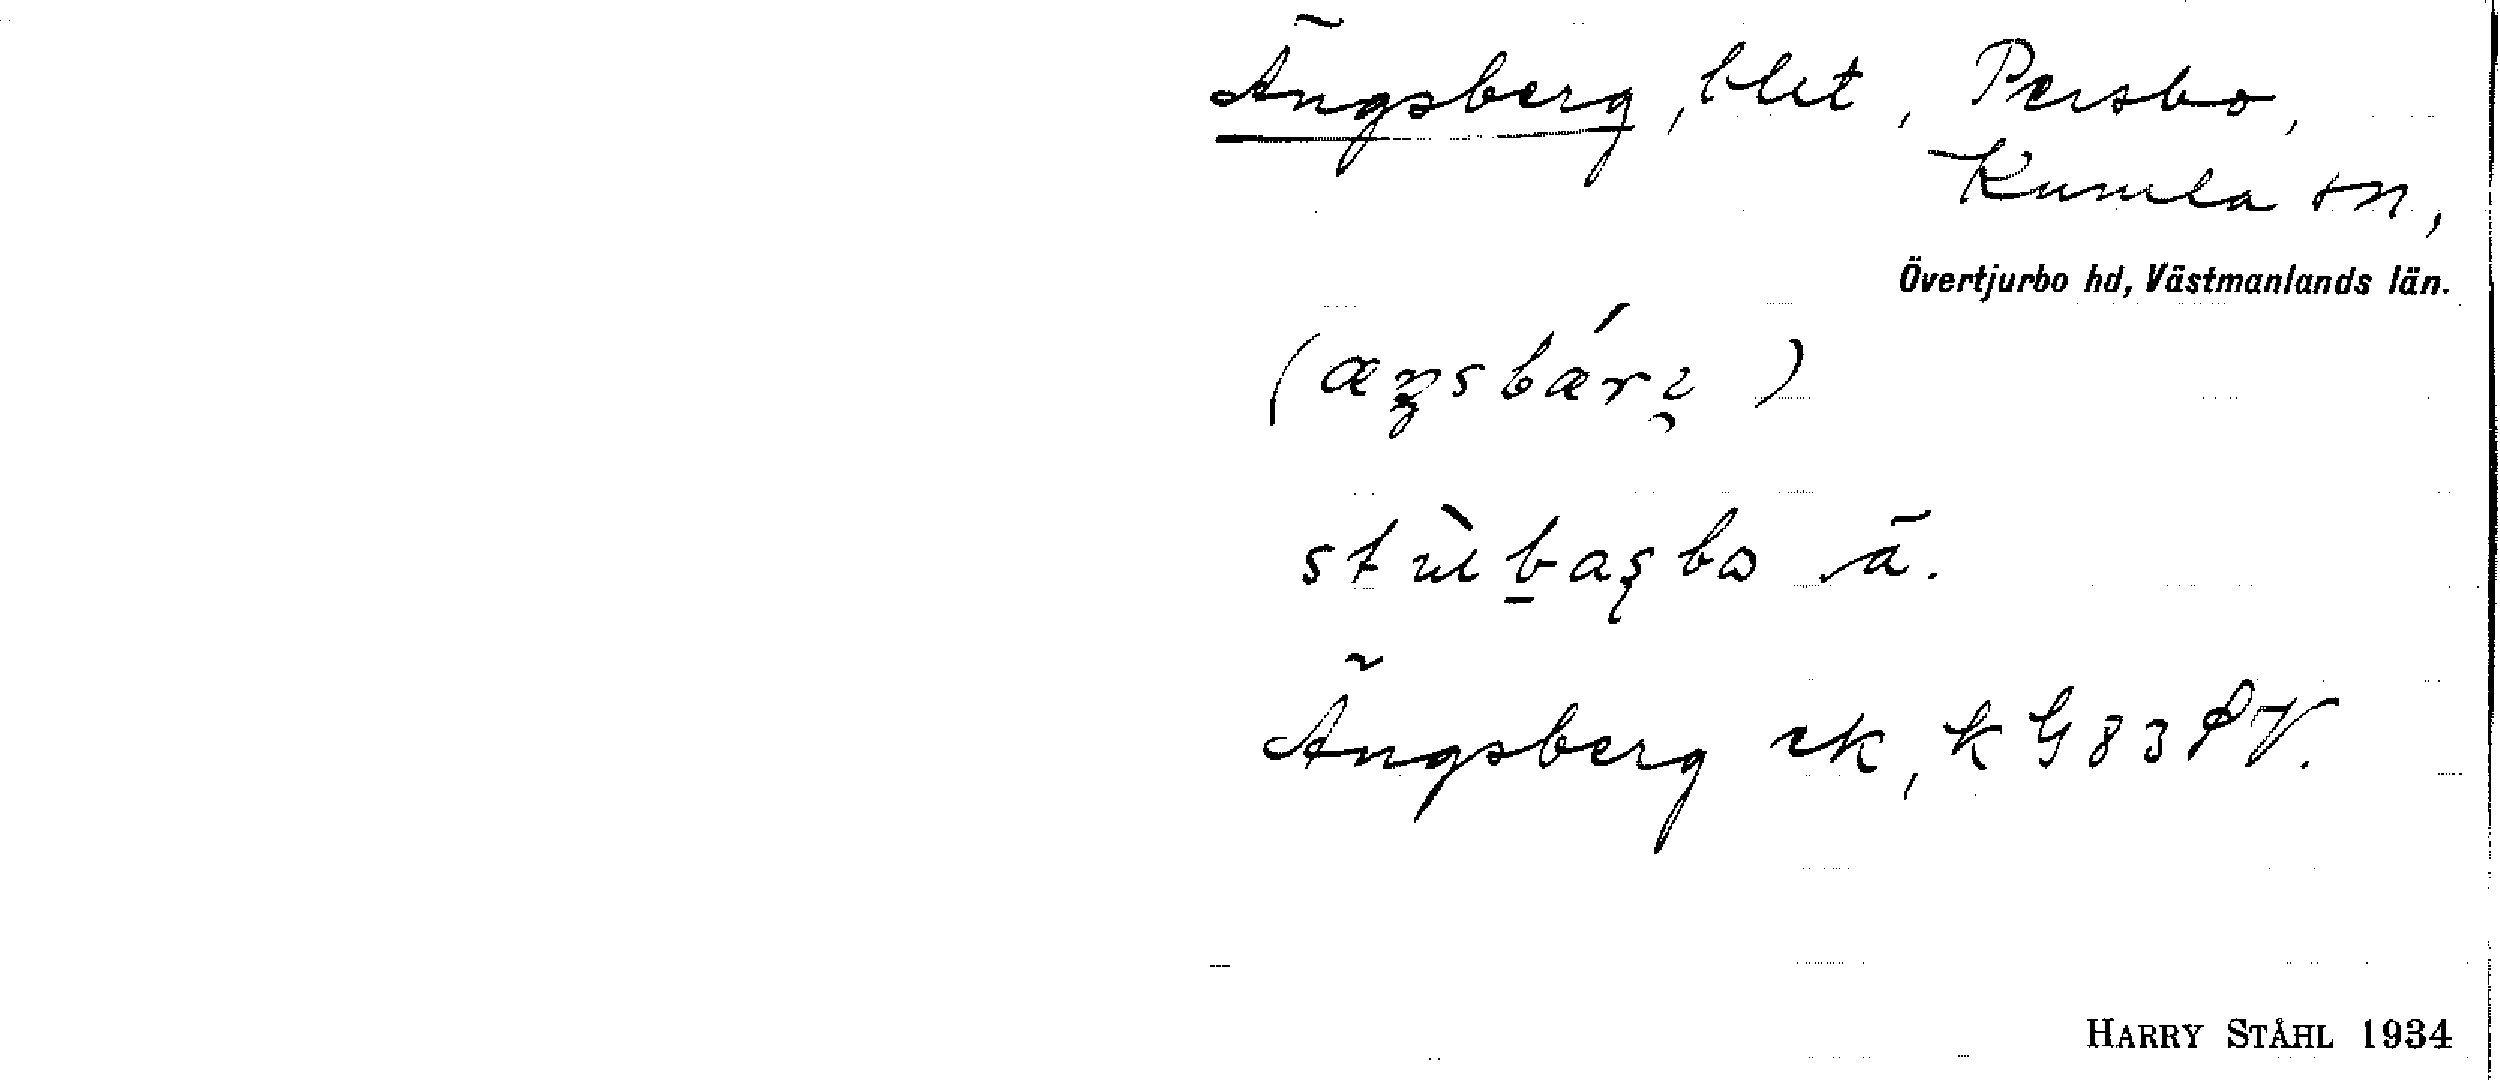 Ängsberg, lht, Persbo,
Kumla sn,
Övertjurbo hd, Västmanlands län.
(æŋsbárɩ̯)
ä.
Ängsberg ek, k G 83 PV.
HARRY STÅHL 1934